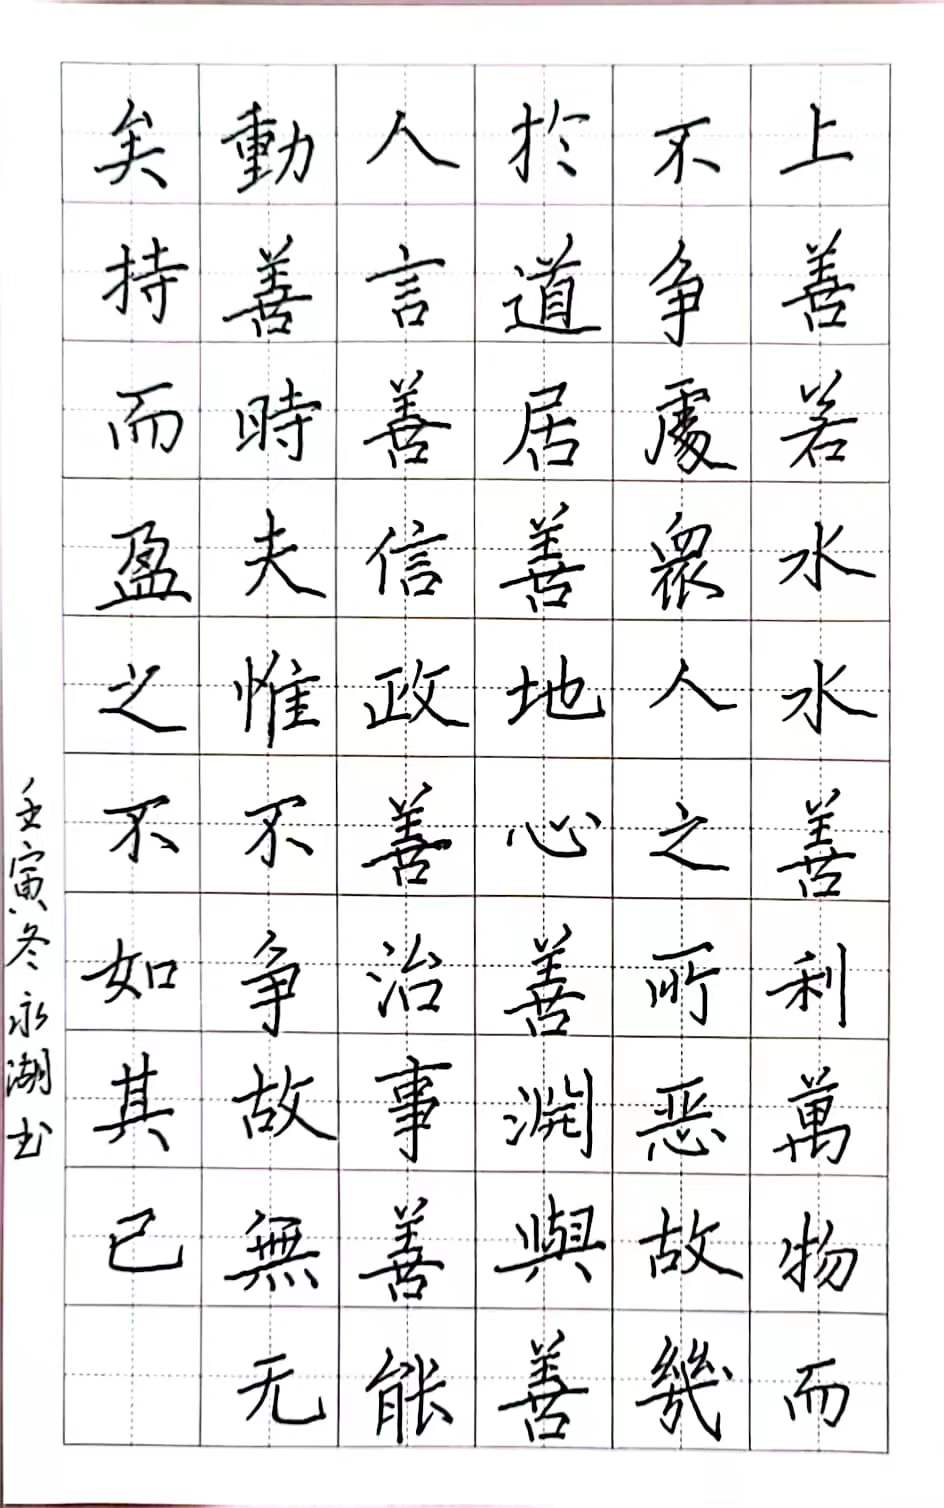 上善若水水善利萬物而
不争處衆人之所恶故幾
於道居善地心善渊與善
人言善信政善治事善能
動善時夫惟不争故無无
矣持而盈之不如其已
壬寅冬永湖书